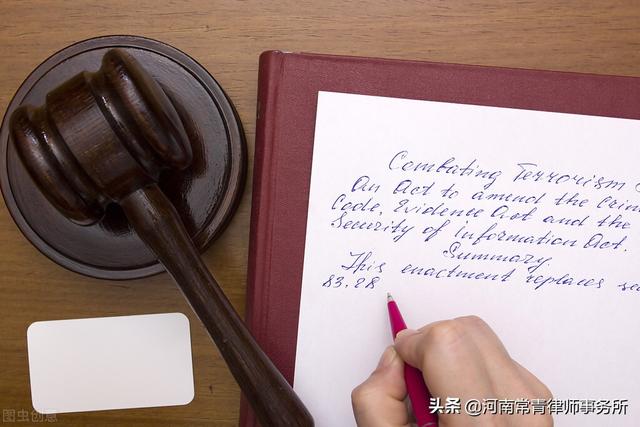 Combating Terrorism
An Act to amend the Crim
Code, Evidence Act and the
Security of Information Act.
Summary
This enactment replaces sec
83.28
图虫创意
头条 @河南常青律师事务所